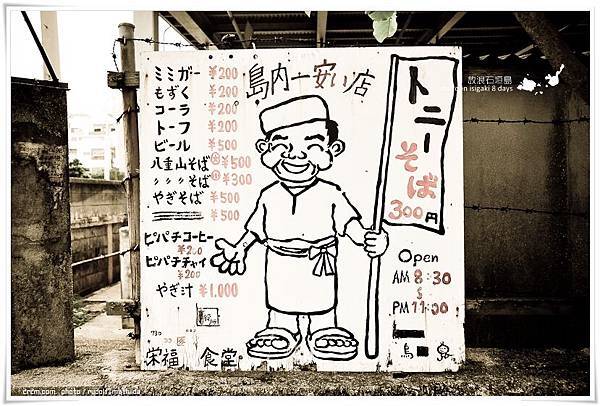 放浪石垣島
isigaki 8 days
島内一安い店
ミミガー ¥200
もずく ¥200
コーラ ¥200
トーフ ¥200
ビール ¥500
八重山そば 大 ¥500
〃〃〃そば 小 ¥300
やぎそば ¥500
¥500
ピパチコーヒー
¥200
ピパチチャイ
¥200
やぎ汁 ¥1.000
トニーそば
300円
Open
AM 8:30
PM 11:00
栄福 食堂